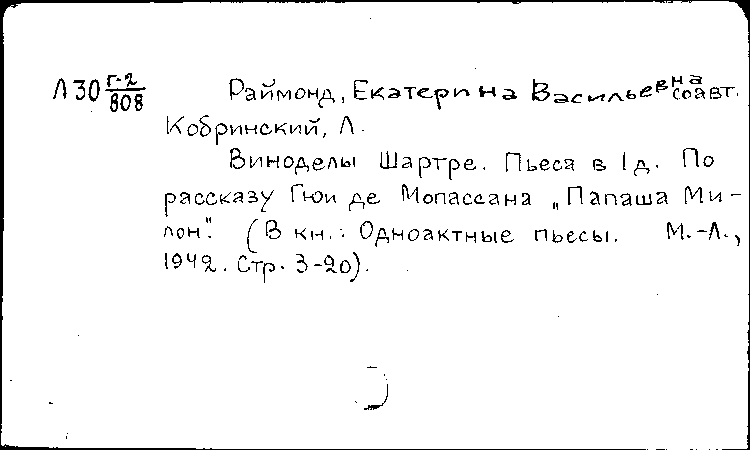 Л30 Г-2/808 Раймонд, Екатерина Васильевна соавт.
Кобринский, Л.
Виноделы Шартре. Пьеса в 1 д. По
рассказу Гюи де Мопассана „Папаша Ми-
лон". (В кн.: Одноактные пьесы. М.-Л.,
1942. Стр. 3-20).